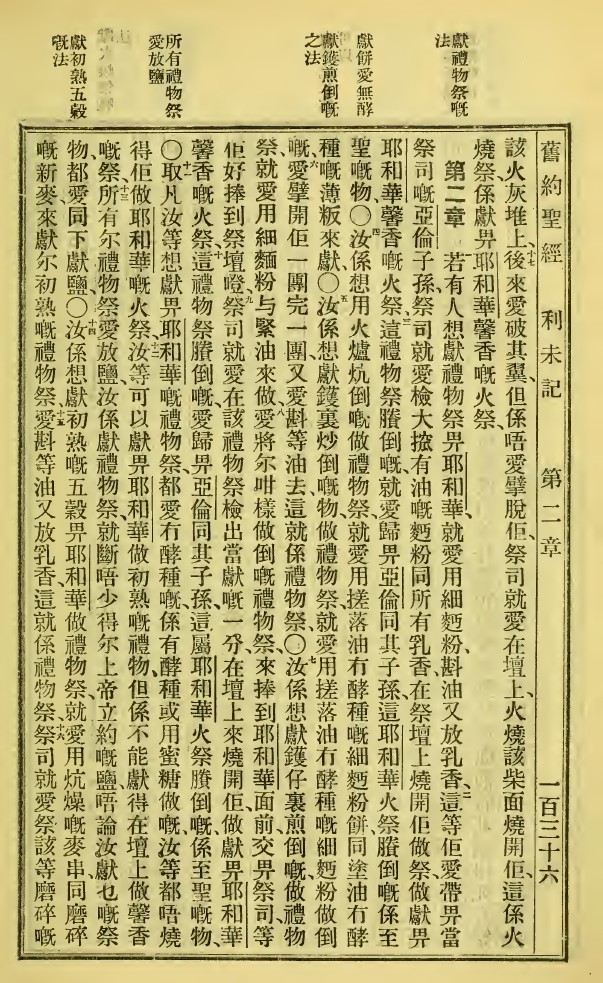 獻禮物祭嘅
法
獻餅愛無酵
獻鑊煎倒嘅
之法
所有禮物祭
愛放鹽
獻初熟五穀
嘅法
舊約聖經 利未記 第二章 一百三十六
該火灰堆上、十七後來愛破其翼、但係唔愛擘脫佢、祭司就愛在壇上、火燒該柴面燒開佢、這係火
燒祭、係獻畀耶和華馨香嘅火祭、
第二章 一若有人想獻禮物祭畀耶和華、就愛用細麪粉、斟油又放乳香、二這等佢愛帶畀當
祭司嘅亞倫子孫、祭司就愛檢大揸有油嘅麪粉同所有乳香、在祭壇上燒開佢做祭、做獻畀
耶和華馨香嘅火祭、三這禮物祭賸倒嘅、就愛歸畀亞倫同其子孫、這耶和華火祭賸倒嘅、係至
聖嘅物、〇四汝係想用火爐炕倒嘅做禮物祭、就愛用搓落油冇酵種嘅細麪粉餅、同塗油冇酵
種嘅薄粄來獻、〇五汝係想獻鑊裏炒倒嘅物、做禮物祭、就愛用搓落油冇酵種嘅細麪粉做倒
嘅、六愛擘開佢一團完一團、又愛斟等油去、這就係禮物祭、〇七汝係想獻鑊仔裏煎倒嘅、做禮物
祭、就愛用細麵粉与緊油來做、八愛將尔咁樣做倒嘅禮物祭、來捧到耶和華面前、交畀祭司、等
佢好捧到祭壇嶝、九祭司就愛在該禮物祭檢出當獻嘅一分、在壇上來燒開佢、做獻畀耶和華
馨香嘅火祭、十這禮物祭賸倒嘅、愛歸畀亞倫同其子孫、這屬耶和華火祭賸倒嘅、係至聖嘅物、
〇十一取凡汝等想獻畀耶和華嘅禮物祭、都愛冇酵種嘅、係有酵種或用蜜糖做嘅、汝等都唔燒
得佢做耶和華嘅火祭、十二汝等可以獻畀耶和華做初熟嘅禮物、但係不能獻得在壇上做馨香
嘅祭、十三所有尔禮物祭愛放鹽、汝係獻禮物祭、就斷唔少得尔上帝立約嘅鹽、唔論汝獻乜嘅祭
物、都愛同下獻鹽、〇十四汝係想獻初熟嘅五穀畀耶和華做禮物祭、就愛用炕燥嘅麥串、同磨碎
嘅新麥、來獻尔初熟嘅禮物祭、十五愛斟等油又放乳香、這就係禮物祭、十六祭司就愛祭該等磨碎嘅